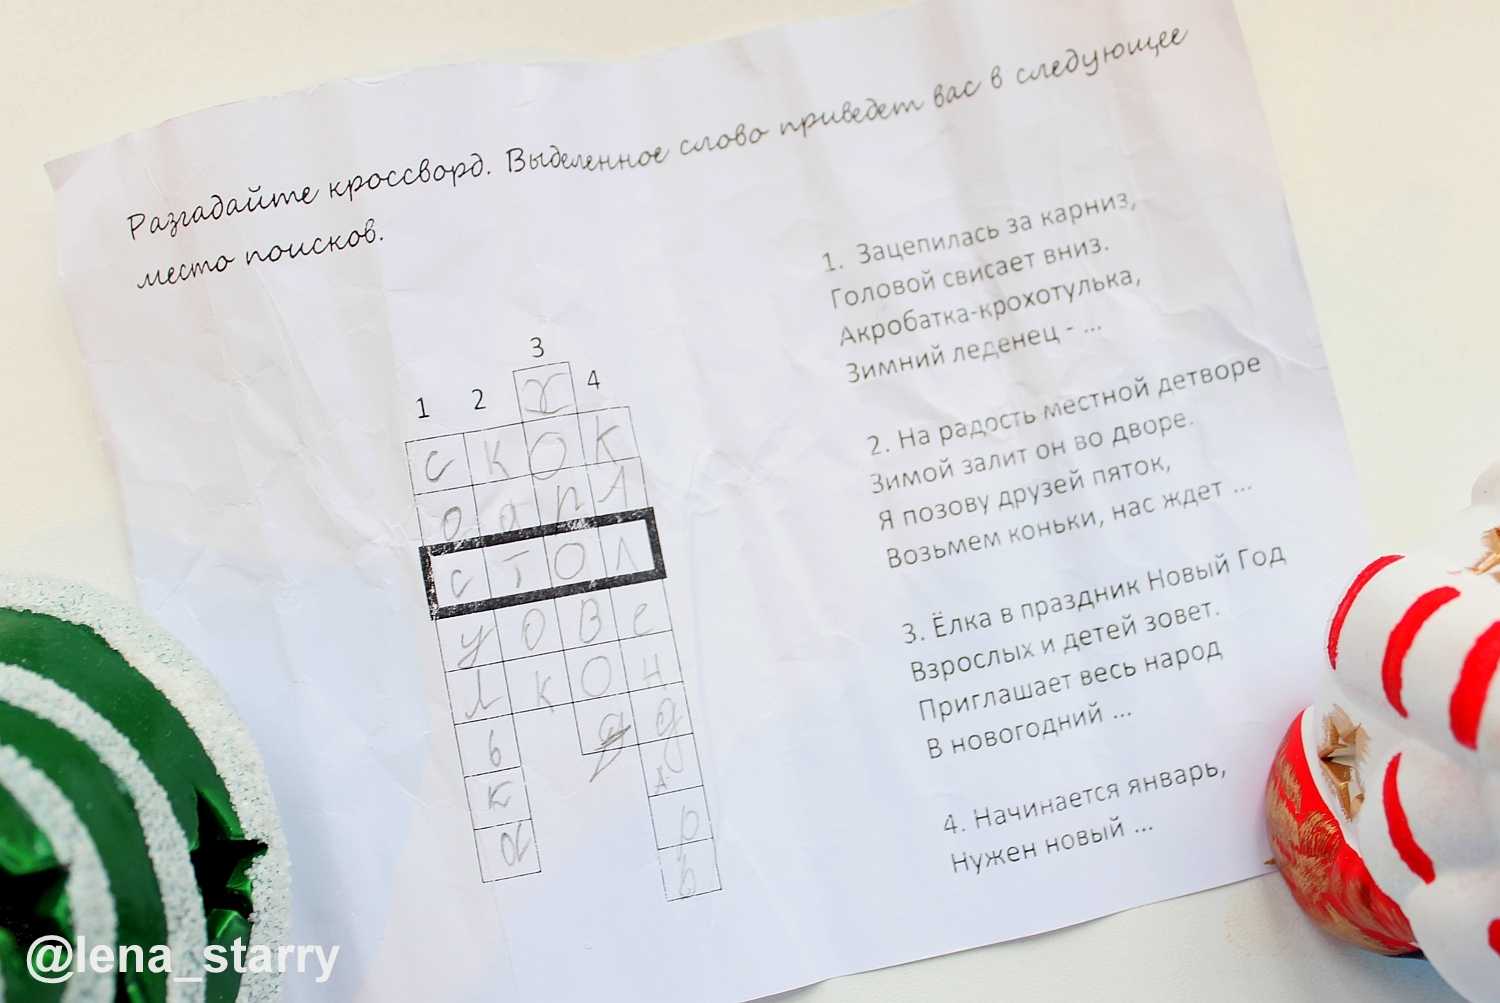 Разгадайте кроссворд. Выделенное слово приведет вас в следующее
место поисков.
3
1 2 4
х
с к о к
о а р а
с т о л
у о в е
л к о н
ь д д
к А
а р
ь
1. Зацепилась за карниз,
Головой свисает вниз.
Акробатка-крохотулька,
Зимний леденец - ...
2. На радость местной детворе
Зимой залит он во дворе.
Я позову друзей пяток,
Возьмем коньки, нас ждет ...
3. Ёлка в праздник Новый Год
Взрослых и детей зовет.
Приглашает весь народ
В новогодний ...
4. Начинается январь,
Нужен новый ...
@lena_starry